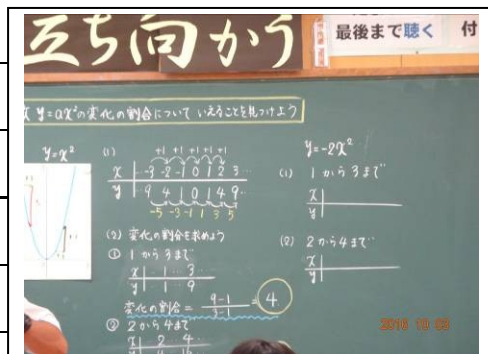 立ち向かう
最後まで聴く
付
y=ax²の変化の割合について いえることを見つけよう
y=x²
(1)
+1 +1 +1 +1 +1
x -3 -2 -1 0 1 2 3…
y 9 4 1 0 1 4 9…
-5 -3 -1 1 3 5
(2) 変化の割合を求めよう
① 1から3まで
x 1 … 3
y 1 … 9
変化の割合 = 9-1/3-1 = 4
② 2から4まで
x 2 … 4
y=-2x²
(1) 1から3まで
x
y
(2) 2から4まで
x
y
2016 10 03